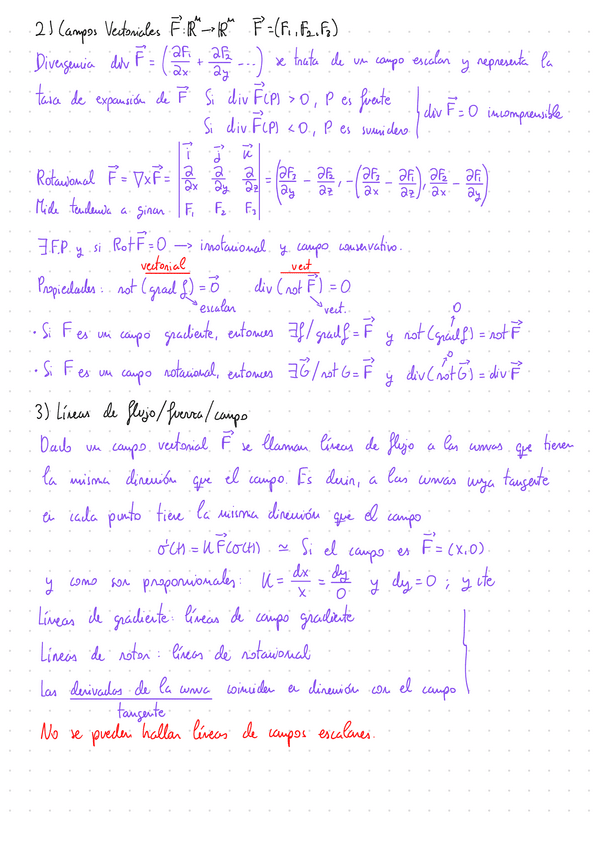 2) Campos Vectoriales F⃗: ℝⁿ → ℝⁿ F⃗ = (F₁, F₂, F₃)
Divergencia div F⃗ = (∂F₁/∂x + ∂F₂/∂y ...) se trata de un campo escalar y representa la
tasa de expansión de F⃗ Si div F⃗(P) > 0, P es fuente
Si div F⃗(P) < 0, P es sumidero
div F⃗ = 0 incomprensible
Rotacional F⃗ = ∇×F⃗ = | i⃗ j⃗ k⃗ ; ∂/∂x ∂/∂y ∂/∂z ; F₁ F₂ F₃ | = (∂F₃/∂y - ∂F₂/∂z, -(∂F₃/∂x - ∂F₁/∂z), ∂F₂/∂x - ∂F₁/∂y)
Mide tendencia a girar
∃ F.P. y si Rot F⃗ = 0 → irrotacional y campo conservativo.
vectorial vect
Propiedades: rot (grad f) = 0⃗ div (rot F⃗) = 0
escalar vect.
0
· Si F es un campo gradiente, entonces ∃f / grad f = F⃗ y rot (grad f) = rot F⃗
0
· Si F es un campo rotacional, entonces ∃G⃗ / rot G = F⃗ y div (rot G⃗) = div F⃗
3) Líneas de flujo/fuerza/campo
Dado un campo vectorial F⃗ se llaman líneas de flujo a las curvas que tienen
la misma dirección que el campo. Es decir, a las curvas cuya tangente
en cada punto tiene la misma dirección que el campo
σ'(t) = K F⃗(σ(t)) ≃ Si el campo es F⃗ = (x, 0)
y como son proporcionales: K = dx/x = dy/0 y dy = 0 ; y cte
Líneas de gradiente: líneas de campo gradiente
Líneas de rotor: líneas de rotacional
Las derivadas de la curva coinciden en dirección con el campo
tangente
No se pueden hallar líneas de campos escalares.